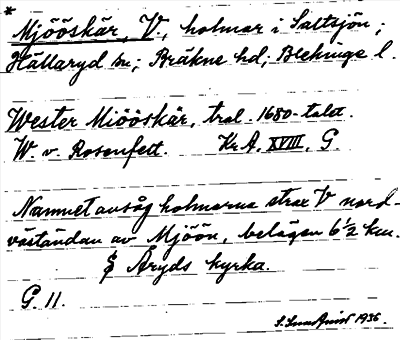 *
Mjööskär, V., holmar i Saltsjön;
Hällaryd sn; Bräkne hd; Blekinge l.
Wester Miööskär, trol. 1680-talet.
W. v. Rosenfelt. Kr A, XVIII, G.
Namnet avsåg holmarna strax V nord-
väständan av Mjöön, belägen 6½ km.
S Åryds kyrka.
G. 11.
S. Lundqvist 1936.